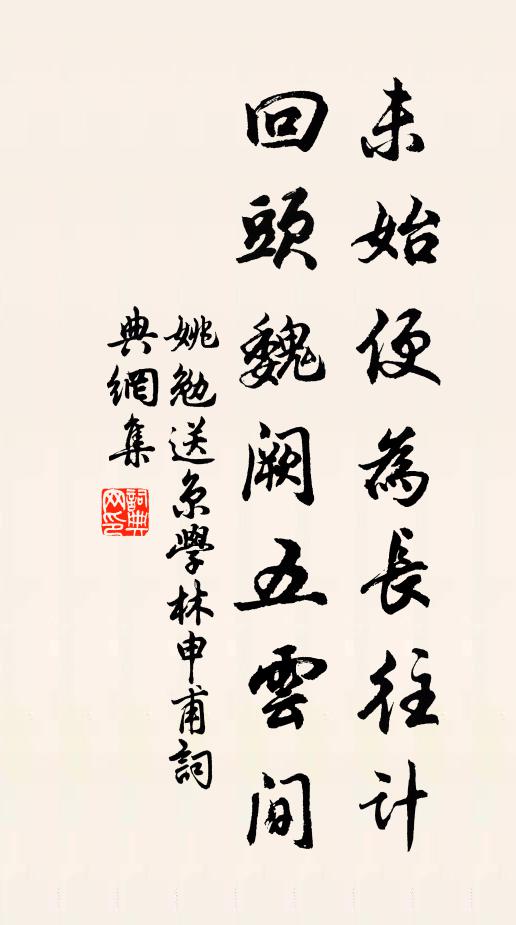 未始便為長往計
回頭魏闕五雲間
姚勉送京學林申甫詞
典網集
詞典網印